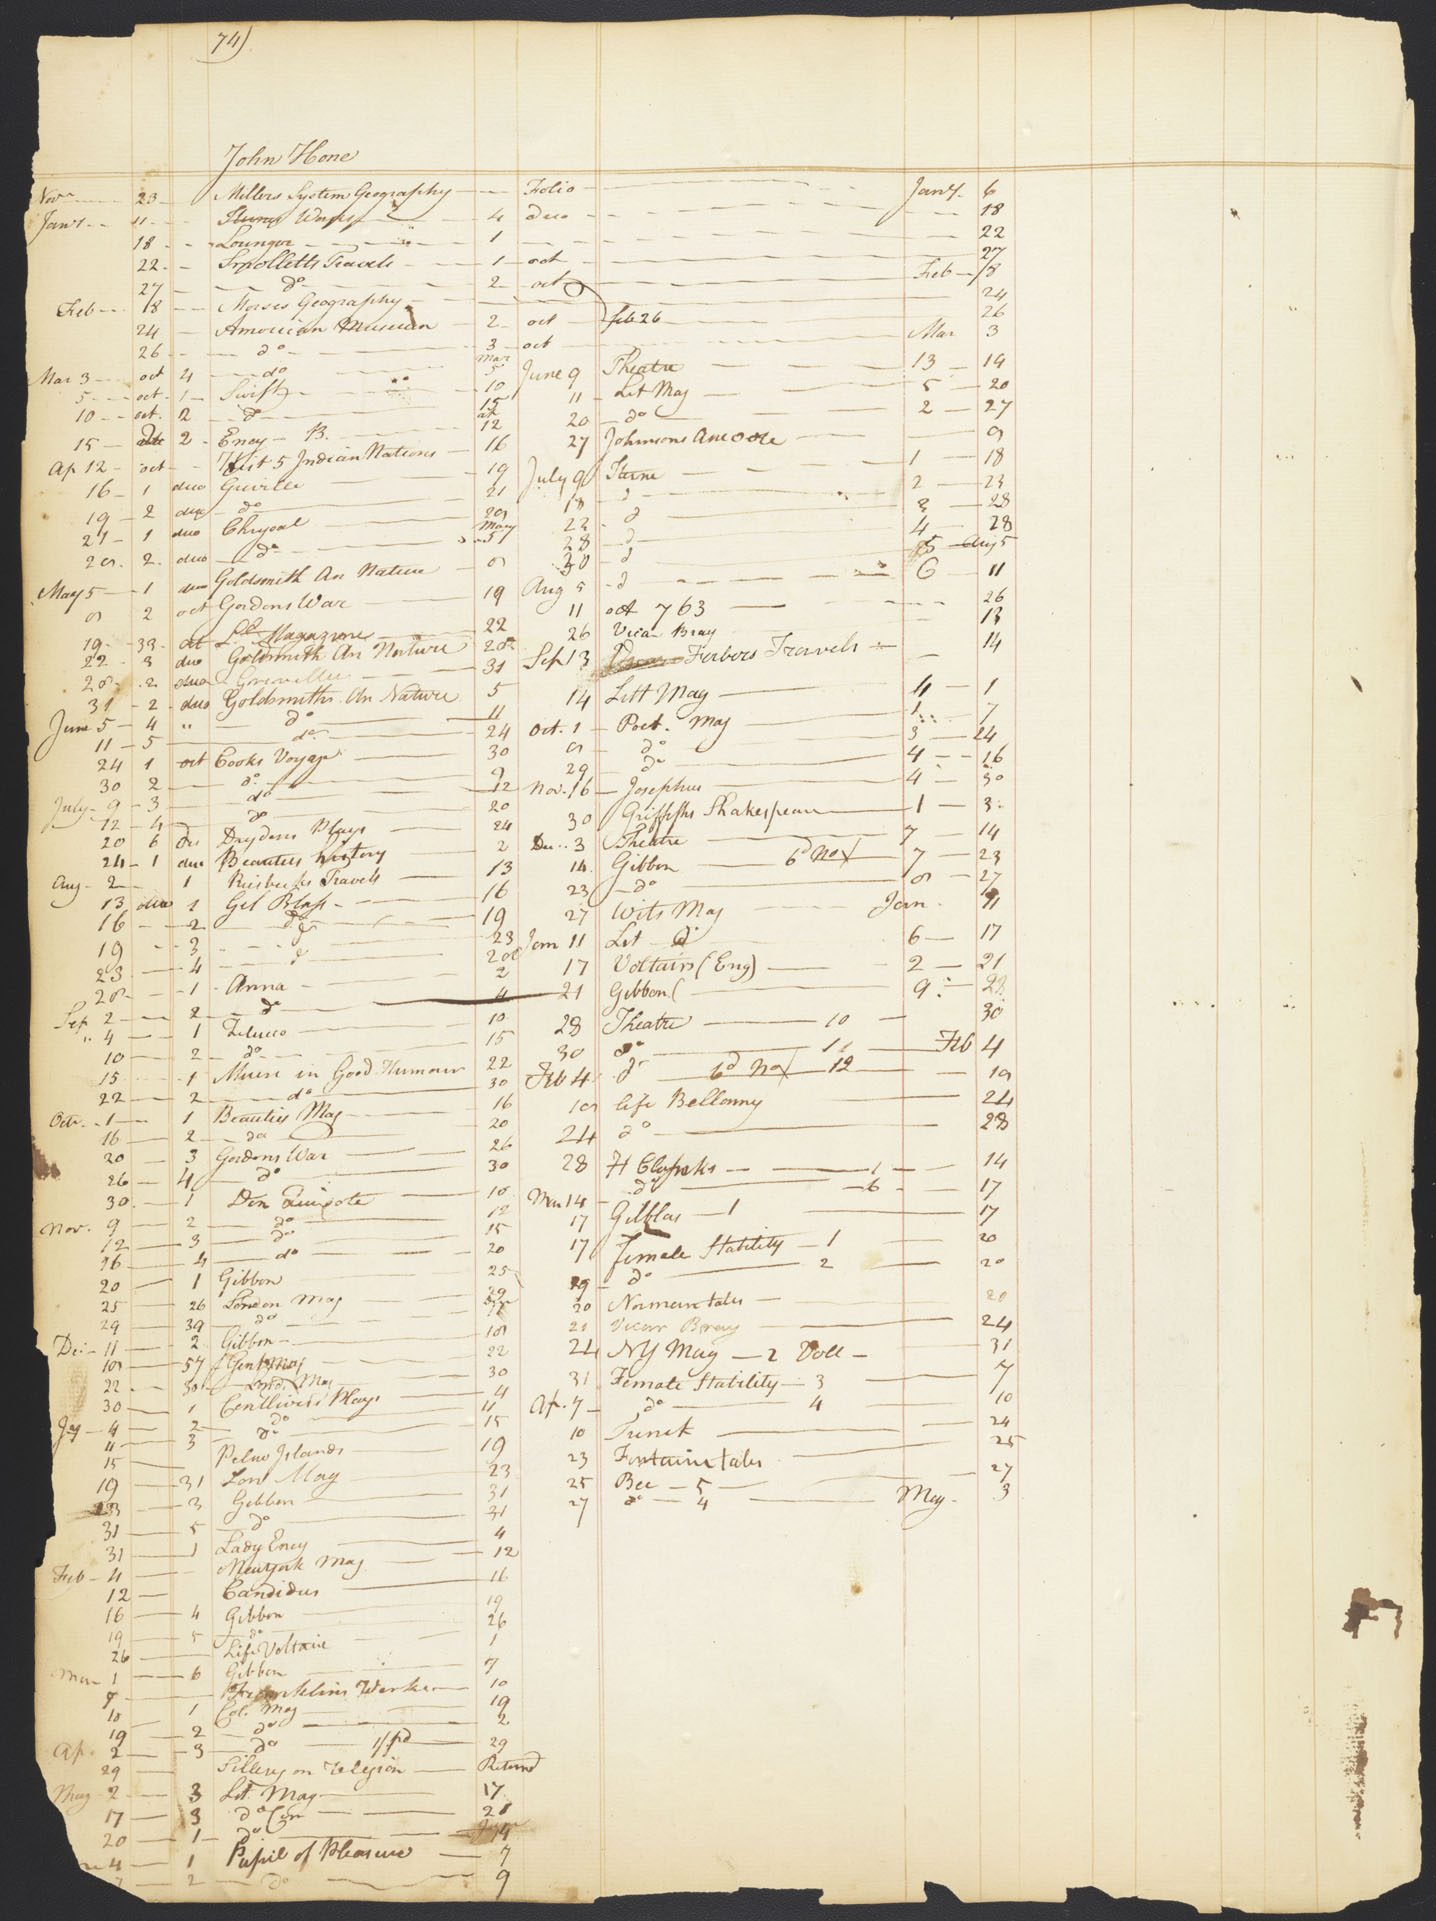 74)
John Hone
Novr 23 Millers System Geography Folio Jany. 6
Jany 11 Works 4 duo 18
18 Lounger 1 22
22 Smolletts Travels 1 oct 27
27 do 2 oct Feb 18
Feb 18 Morses Geography 24
24 American Museum 2 oct feb 26 26
26 do 3 oct Mar 3
Mar 3 oct 4 do Mar 5
5 oct 1 Swift 10
10 oct. 2 do 15
15 2 Ency B. ap 12
Ap 12 oct Hist 5 Indian Nations 16
16 1 duo Greville 19
19 2 duo do 21
21 1 duo Chrysal 28
28 2 duo do May 5
May 5 1 duo Goldsmith An Nature 8
8 2 oct Gordons War 19
19 33 oct Ld. Magazine 22
22 3 duo Goldsmith An Nature 28
28 2 duo Greville 31
31 2 duo Goldsmiths An Nature 5
June 5 4 " do 11
11 5 do 24
24 1 oct Cooks Voyage 30
30 2 do 9
July 9 3 do 12
12 4 do 20
20 6 Drydens Plays 24
24 1 duo Beauties history 2
Aug 2 1 Riesbecks Travels 13
13 duo 1 Gil Blass 16
16 2 do 19
19 3 do 23
23 4 do 28
28 1 Anna 2
Sep 2 2 do 4
" 4 1 Zeluco 10
10 2 do 15
15 1 Muse in Good Humour 22
22 2 do 30
Octr. 1 1 Beauties Mag 16
16 2 do 20
20 3 Gordons War 26
26 4 do 30
30 1 Don Quixote 10
Nov. 9 2 do 12
12 3 do 15
16 4 do 20
20 1 Gibbon 25
25 26 London Mag 29
29 39 do
Dec 11 2 Gibbon 18
18 57 Gent Mag 22
22 30 Lond. Mag 30
30 1 Centlivers Plays 4
Jay 4 2 do 11
11 3 do 15
15 Pelew Islands 19
19 31 Lon Mag 23
23 3 Gibbon 31
31 5 do 31
31 1 Lady Ency 4
Feb 4 Newyork Mag 12
12 Candidus 16
16 4 Gibbon 19
19 5 do 26
26 Life Voltaire 1
Mar 1 6 Gibbon 7
7 Franklins Works 10
10 1 Col. Mag 19
19 2 do 2
Ap. 2 3 do 1/ pd 29
29 Sillery on Religion Returnd
May 2 3 Lit. Mag 17
17 3 do Con 21
20 1 do June 4
4 1 Pupil of Pleasure 7
7 2 do 9
June 9 Theatre 13 14
11 Lit Mag 5 20
20 do 2 27
27 Johnsons Anecdote 9
July 9 Sterne 1 18
18 d 2 23
23 d 3 28
28 d 4 28
30 d 5 Aug 5
Aug 5 d 6 11
11 oct 763 26
26 Vicar Bray 13
Sep 13 Forbers Travels 14
14 Litt Mag 11 1
Oct. 1 Poet. Mag 1 7
8 do 3 24
29 do 4 16
Nov. 16 Josephus 4 30
30 Griffiths Shakespeare 1 3
Dec. 3 Theatre 7 14
14 Gibbon 6d No 7 23
23 do 8 27
27 Wits Mag Jan. 11
Jan 11 Lit do 6 17
17 Voltairs (Eng) 2 21
21 Gibbon ( 9 28
28 Theatre 10 30
30 do 11 Feb 4
Feb 4 do 6d No 12 18
18 life Bellamy 24
24 do 28
28 H Clopcks 1 14
Mar 14 do 6 17
17 Gilblas 1 17
17 Female Stability 1 20
19 do 2 20
20 Norman tales 20
20 Vicar Bray 24
24 NY Mag 2 Voll 31
31 Female Stability 3 7
Ap. 7 do 4 10
10 Trenck 24
23 Fontaine tales 25
25 Bee 5 27
27 do 4 May 3